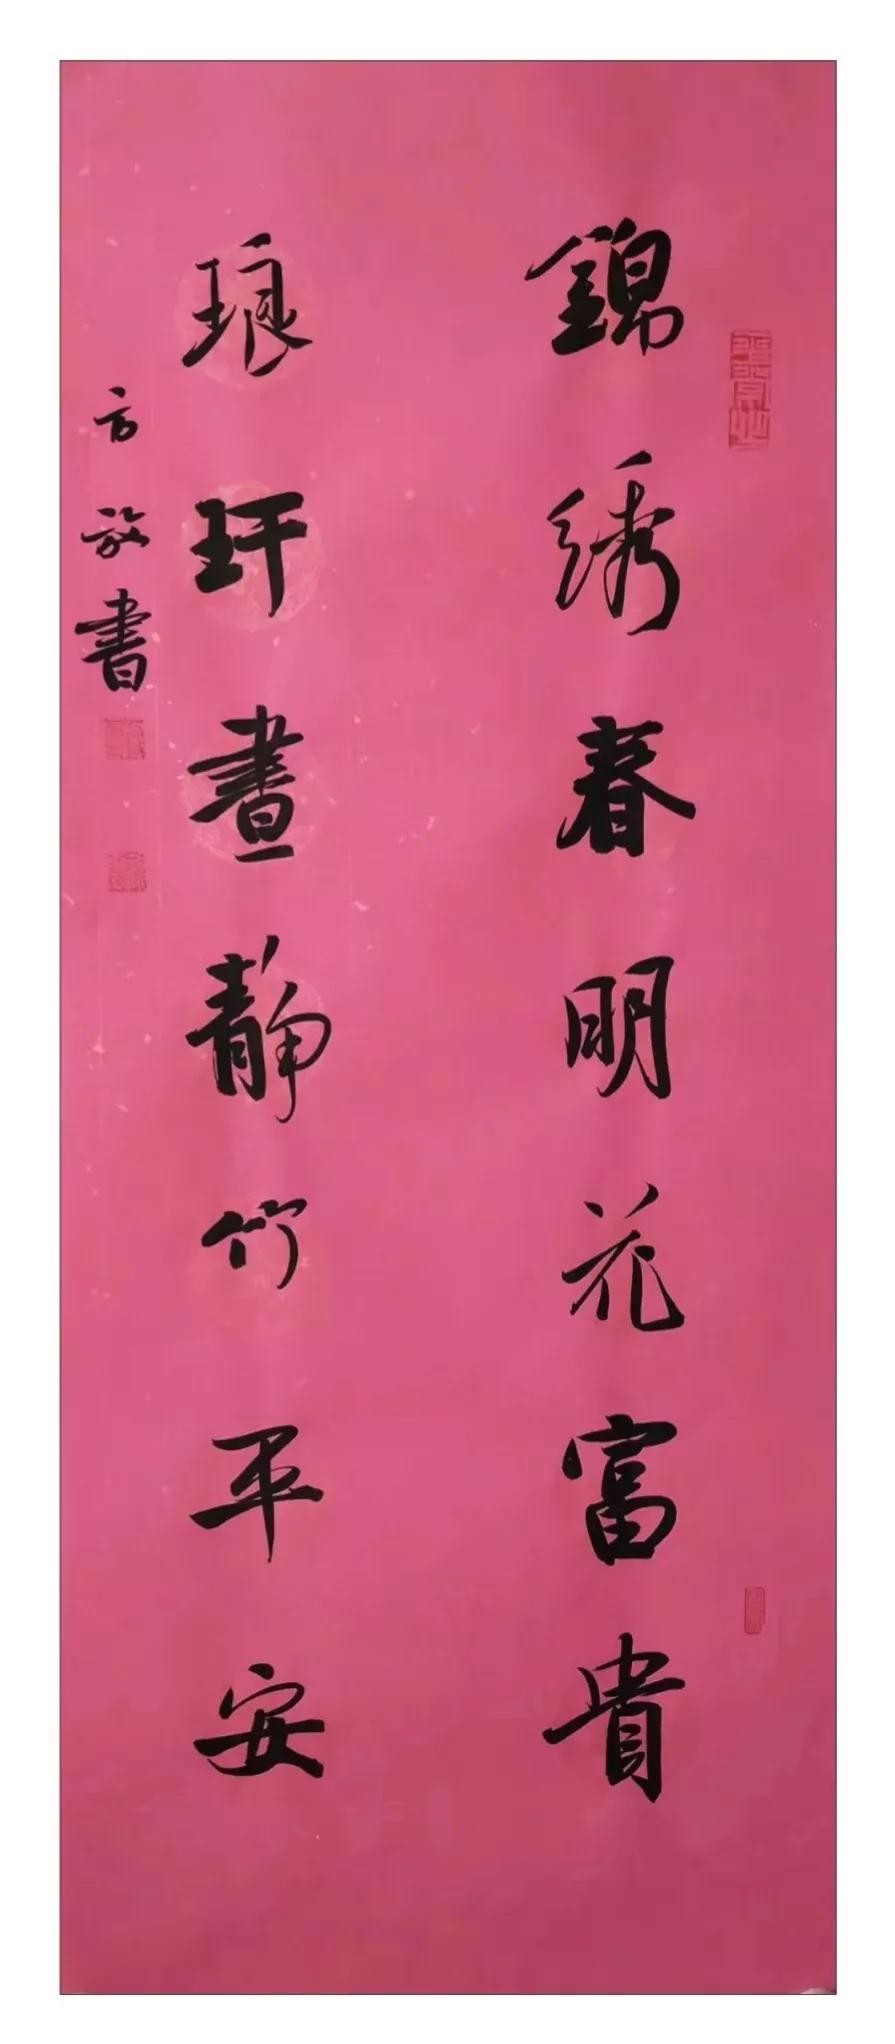 錦绣春明花富貴
琅玕晝靜竹平安
方放書